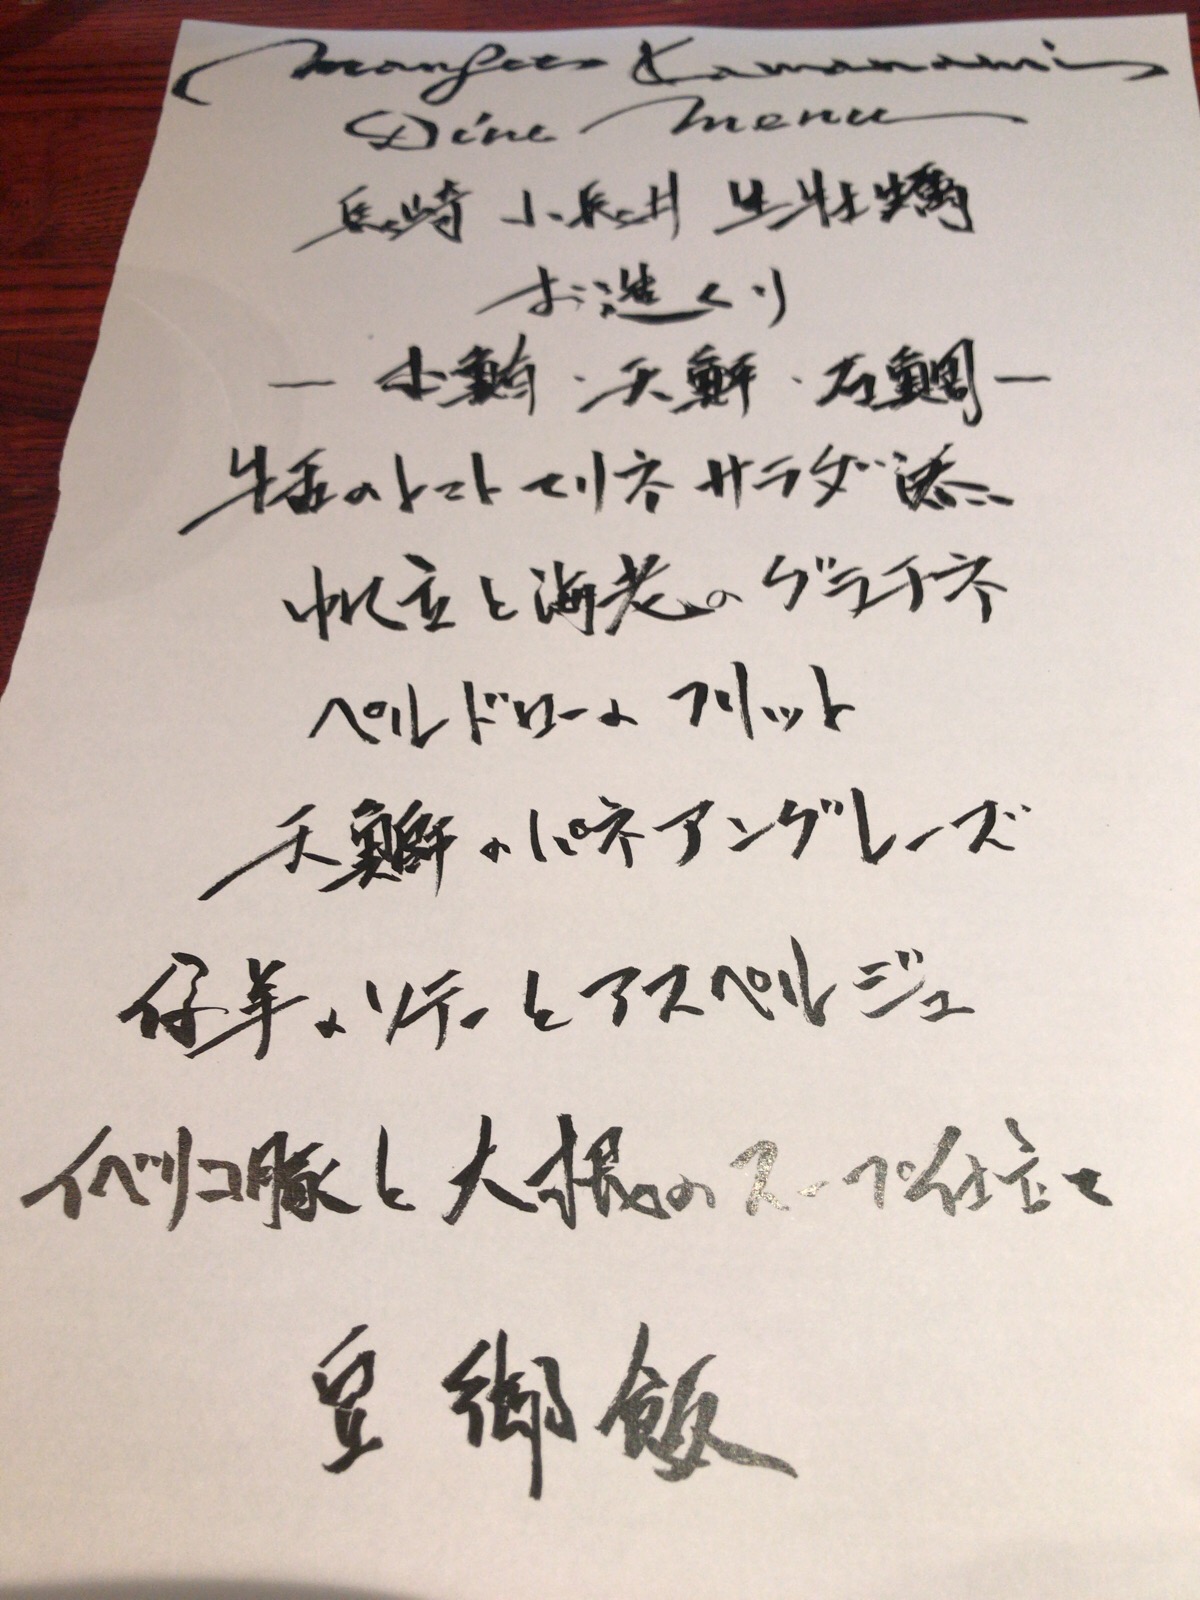 Manger Kamanami
Dine Menu
長崎 小長井 生牡蠣
お造くり
ー 小鮪・天鮃・石鯛 ー
生活のトマト マリネ サラダ添
帆立と海老のグラチネ
ペルドローの フリット
天鮃のパネアングレーズ
仔羊のソテーとアスペルジュ
イベリコ豚と大根のスープ仕立て
豆御飯